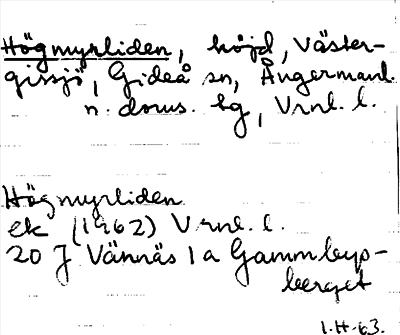 Högmyrliden, höjd, Väster-
gissjö, Gideå sn, Ångermanl.
n. doms. hg, Vrnl. l.
Högmyrliden
ek (1962) Vrnl. l.
20 J Vännäs 1a Gammbyp-
berget
1.H.63.